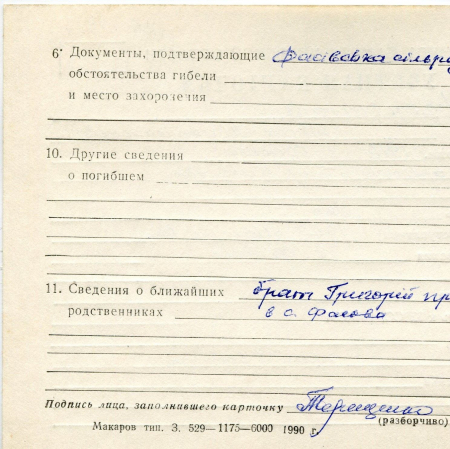 6· Документы, подтверждающие Фасівська сільра
обстоятельства гибели
и место захоронения
10. Другие сведения
о погибшем
11. Сведения о ближайших брат Григорій пр
родственниках в с. Фасова
Подпись лица, заполнившего карточку
(разборчиво)
Макаров тип. З. 529—1175—6000 1990 г.